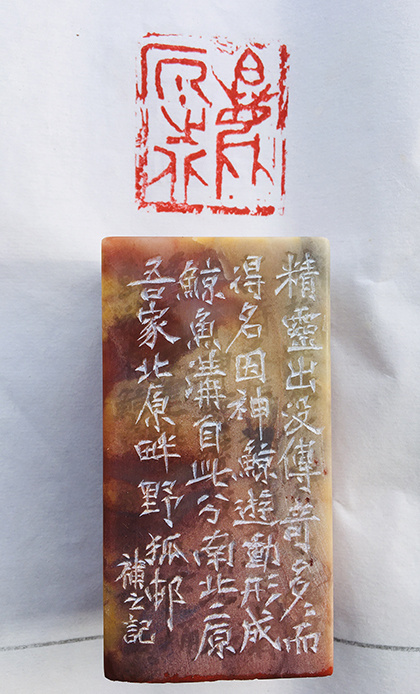 精靈出没傳奇多々而
得名因神鯨遊動形成
鯨魚溝自此分南北二原
吾家北原畔野狐邨
補之記